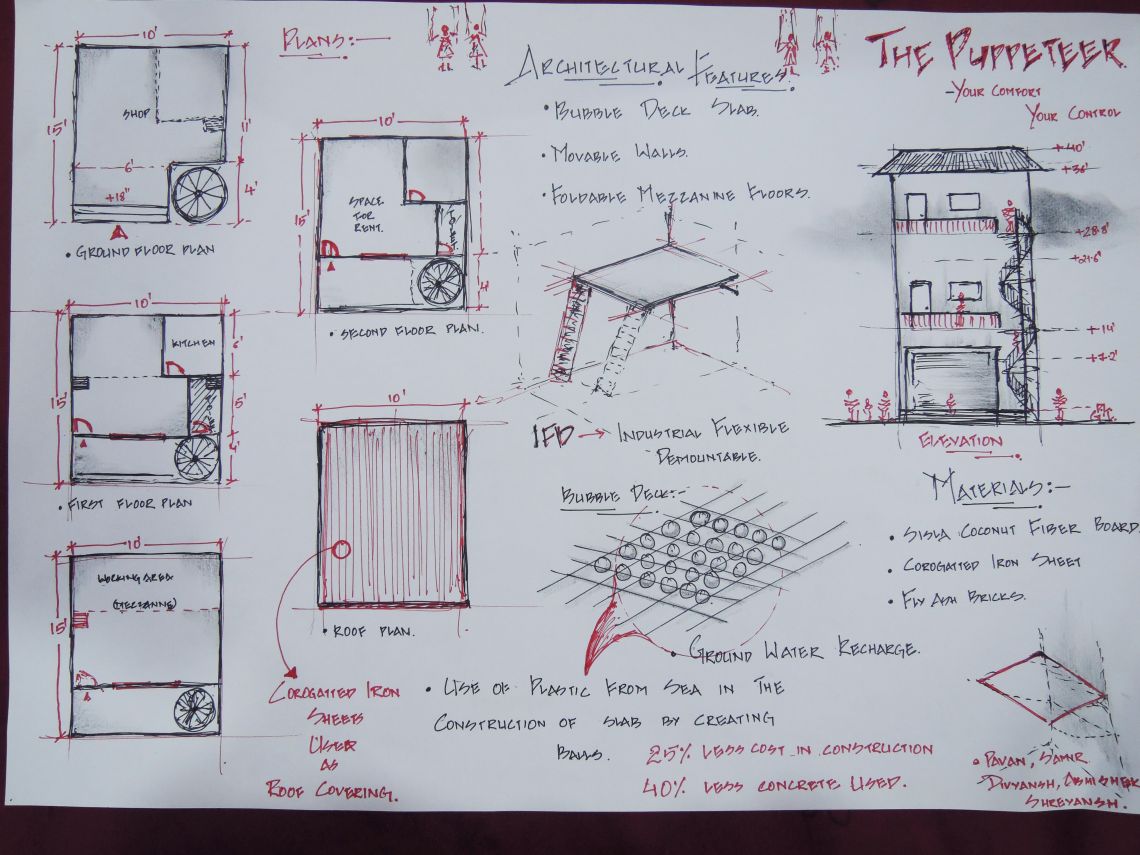 The Puppeteer
-Your Comfort
Your Control
Plans:-
10'
15'
Shop
11'
6'
4'
+18"
Ground Floor Plan
10'
15'
Space
for
Rent.
4'
Second Floor Plan.
10'
15'
Kitchen
6'
5'
4'
First Floor Plan
10'
15'
Working Area
(Mezzanne)
10'
Roof Plan.
Corogatted Iron
Sheets
User
as
Roof Covering.
Architectural Features:
Bubble Deck Slab.
Movable Walls.
Foldable Mezzanine Floors.
IFD → Industrial Flexible
Demountable.
Bubble Deck:-
Ground Water Recharge.
Use of Plastic From Sea in The
Construction of slab by creating
Balls.
25% less cost in construction
40% less concrete used.
+40'
+36'
+28'8'
+21'6'
+14'
+7'2'
Elevation
Materials:-
Sisla Coconut Fiber Board.
Corogatted Iron Sheet
Fly Ash Bricks.
Pavan, Samr.
Divyansh, Abhishek
Shreyansh.